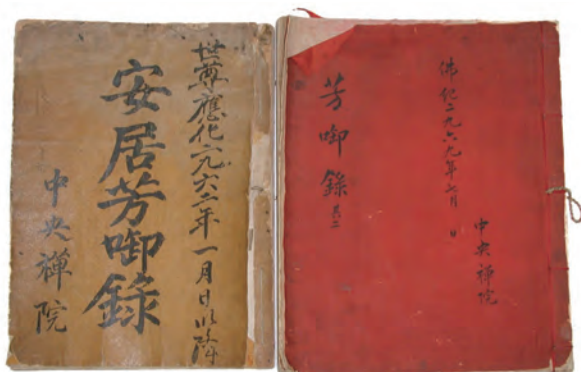 世尊應化二九六二年一月日以降
安居芳啣錄
中央禪院
佛紀二九六九年七月 日
中央禪院
芳啣錄 其二